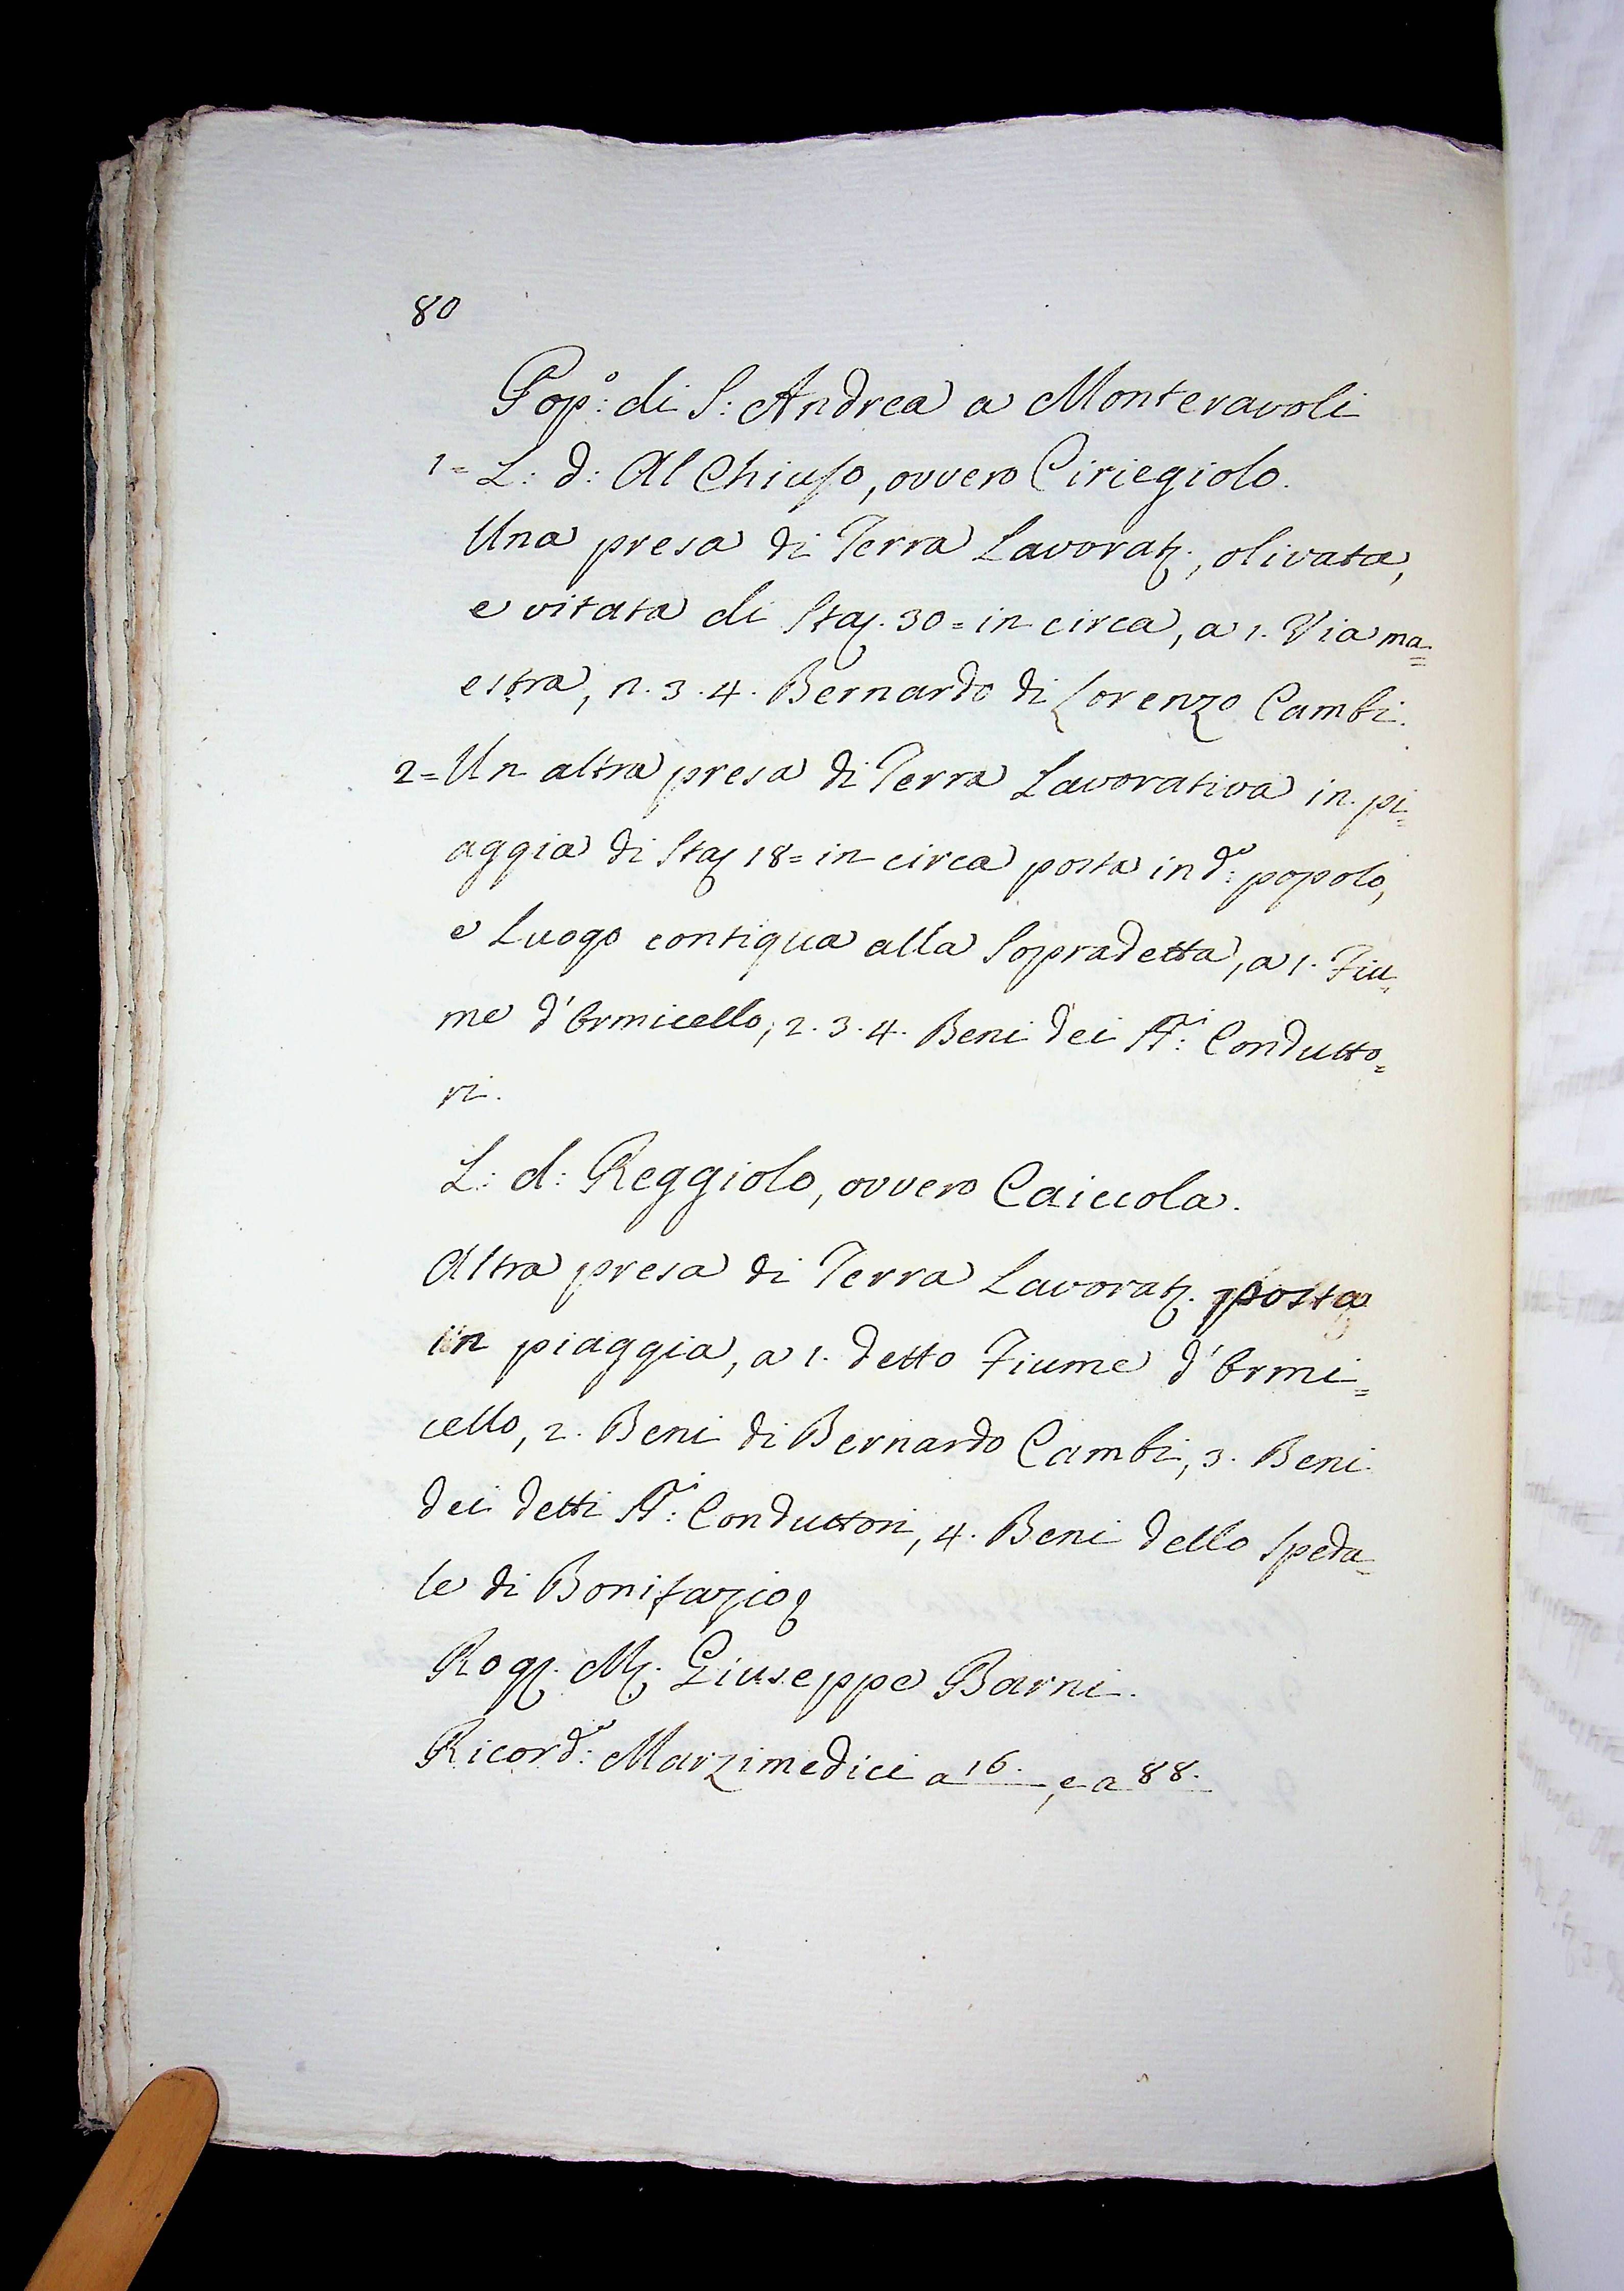 80
Pop.º: di S: Andrea a Monteravoli
1= L: d: Al Chiuso, ovvero Ciriegiolo.
Una presa di Terra Lavorat.; olivata,
e vitata di Staj. 30= in circa, a 1. Via ma=
estra, 2. 3. 4. Bernardo di Lorenzo Cambi.
2= Un altra presa di Terra Lavorativa in pi=
aggia di Staj 18= in circa posta in d.º: popolo,
e Luogo contigua alla Sopradetta, a 1. Fiu=
me d'Ormicello, 2. 3. 4. Beni dei SS.ri: Condutto=
ri.
L: d: Reggiolo, ovvero Caiccola.
Altra presa di Terra Lavorat. posta
in piaggia, a 1. detto Fiume d'Ormi=
cello, 2. Beni di Bernardo Cambi, 3. Beni
dei detti SS.ri: Conduttori, 4. Beni dello Speda=
le di Bonifazio
Rog. M. Giuseppe Barni.
Ricord.º: Marzimedici a 16. , e a 88.